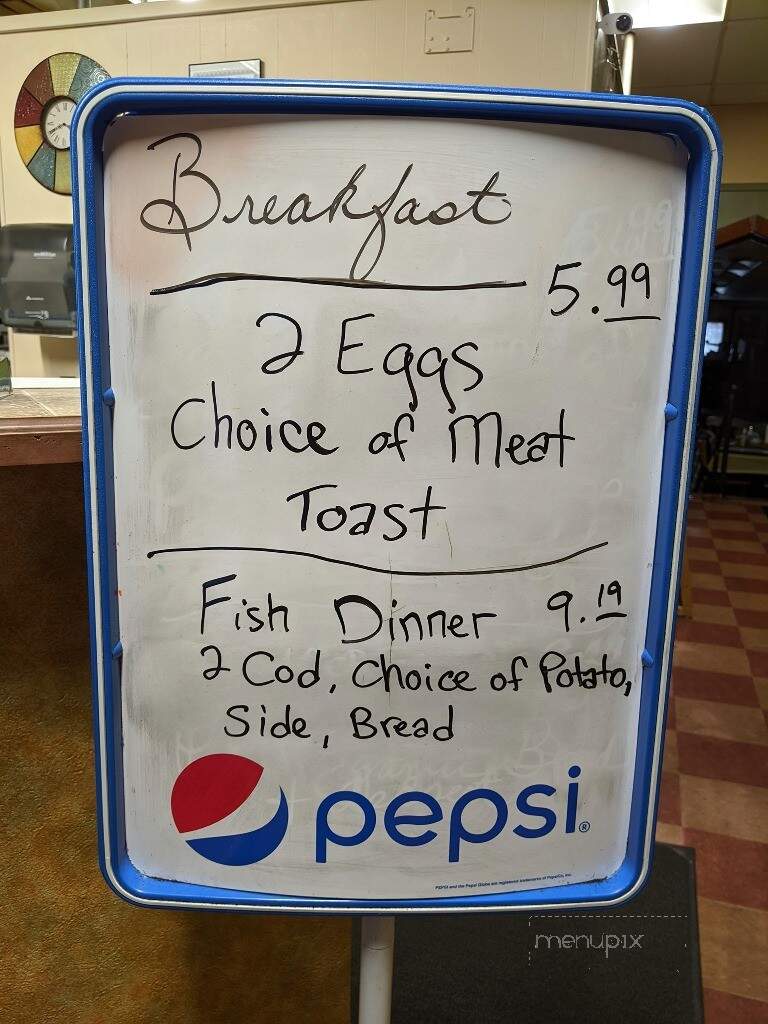 Breakfast
5.99
2 Eggs
Choice of Meat
Toast
Fish Dinner 9.19
2 Cod, Choice of Potato,
Side, Bread
pepsi®
PEPSI and the Pepsi Globe are registered trademarks of PepsiCo, Inc.
menupix